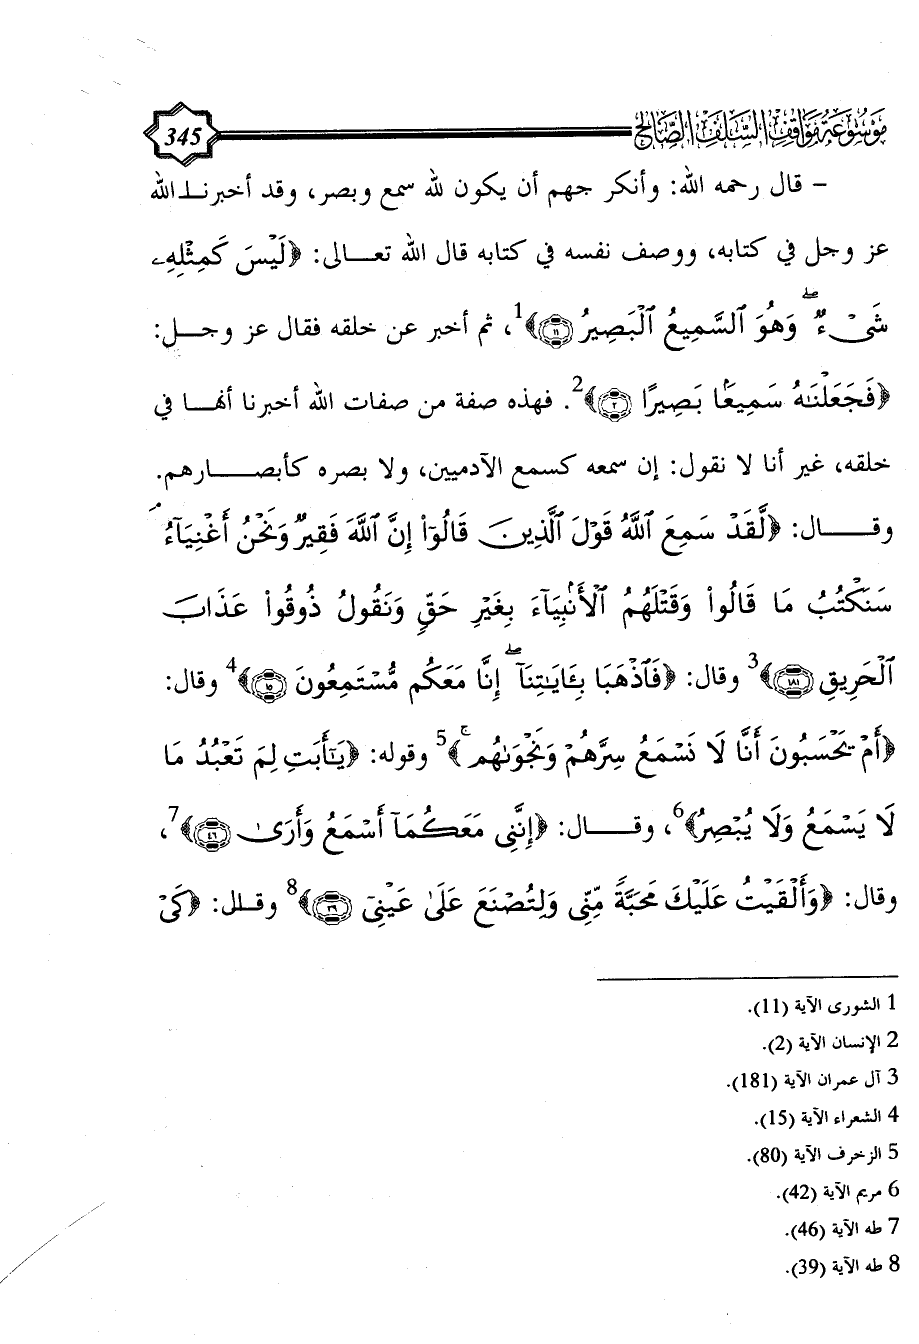 موسوعة مواقف السلف الصالح
345
- قال رحمه الله: وأنكر جهم أن يكون لله سمع وبصر، وقد أخبرنا الله
عز وجل في كتابه، ووصف نفسه في كتابه قال الله تعالى: ﴿لَيْسَ كَمِثْلِهِۦ
شَىْءٌ ۖ وَهُوَ ٱلسَّمِيعُ ٱلْبَصِيرُ ﴿١١﴾﴾1، ثم أخبر عن خلقه فقال عز وجل:
﴿فَجَعَلْنَٰهُ سَمِيعًۢا بَصِيرًا ﴿٢﴾﴾2. فهذه صفة من صفات الله أخبرنا أنها في
خلقه، غير أنا لا نقول: إن سمعه كسمع الآدميين، ولا بصره كأبصارهم.
وقال: ﴿لَّقَدْ سَمِعَ ٱللَّهُ قَوْلَ ٱلَّذِينَ قَالُوٓا۟ إِنَّ ٱللَّهَ فَقِيرٌ وَنَحْنُ أَغْنِيَآءُ ۘ
سَنَكْتُبُ مَا قَالُوا۟ وَقَتْلَهُمُ ٱلْأَنۢبِيَآءَ بِغَيْرِ حَقٍّ وَنَقُولُ ذُوقُوا۟ عَذَابَ
ٱلْحَرِيقِ ﴿١٨١﴾﴾3 وقال: ﴿فَٱذْهَبَا بِـَٔايَٰتِنَآ ۖ إِنَّا مَعَكُم مُّسْتَمِعُونَ ﴿١٥﴾﴾4 وقال:
﴿أَمْ يَحْسَبُونَ أَنَّا لَا نَسْمَعُ سِرَّهُمْ وَنَجْوَىٰهُم ۚ﴾5 وقوله: ﴿يَٰٓأَبَتِ لِمَ تَعْبُدُ مَا
لَا يَسْمَعُ وَلَا يُبْصِرُ﴾6، وقال: ﴿إِنَّنِى مَعَكُمَآ أَسْمَعُ وَأَرَىٰ ﴿٤٦﴾﴾7،
وقال: ﴿وَأَلْقَيْتُ عَلَيْكَ مَحَبَّةً مِّنِّى وَلِتُصْنَعَ عَلَىٰ عَيْنِىٓ ﴿٣٩﴾﴾8 وقال: ﴿كَىْ
1 الشورى الآية (11).
2 الإنسان الآية (2).
3 آل عمران الآية (181).
4 الشعراء الآية (15).
5 الزخرف الآية (80).
6 مريم الآية (42).
7 طه الآية (46).
8 طه الآية (39).